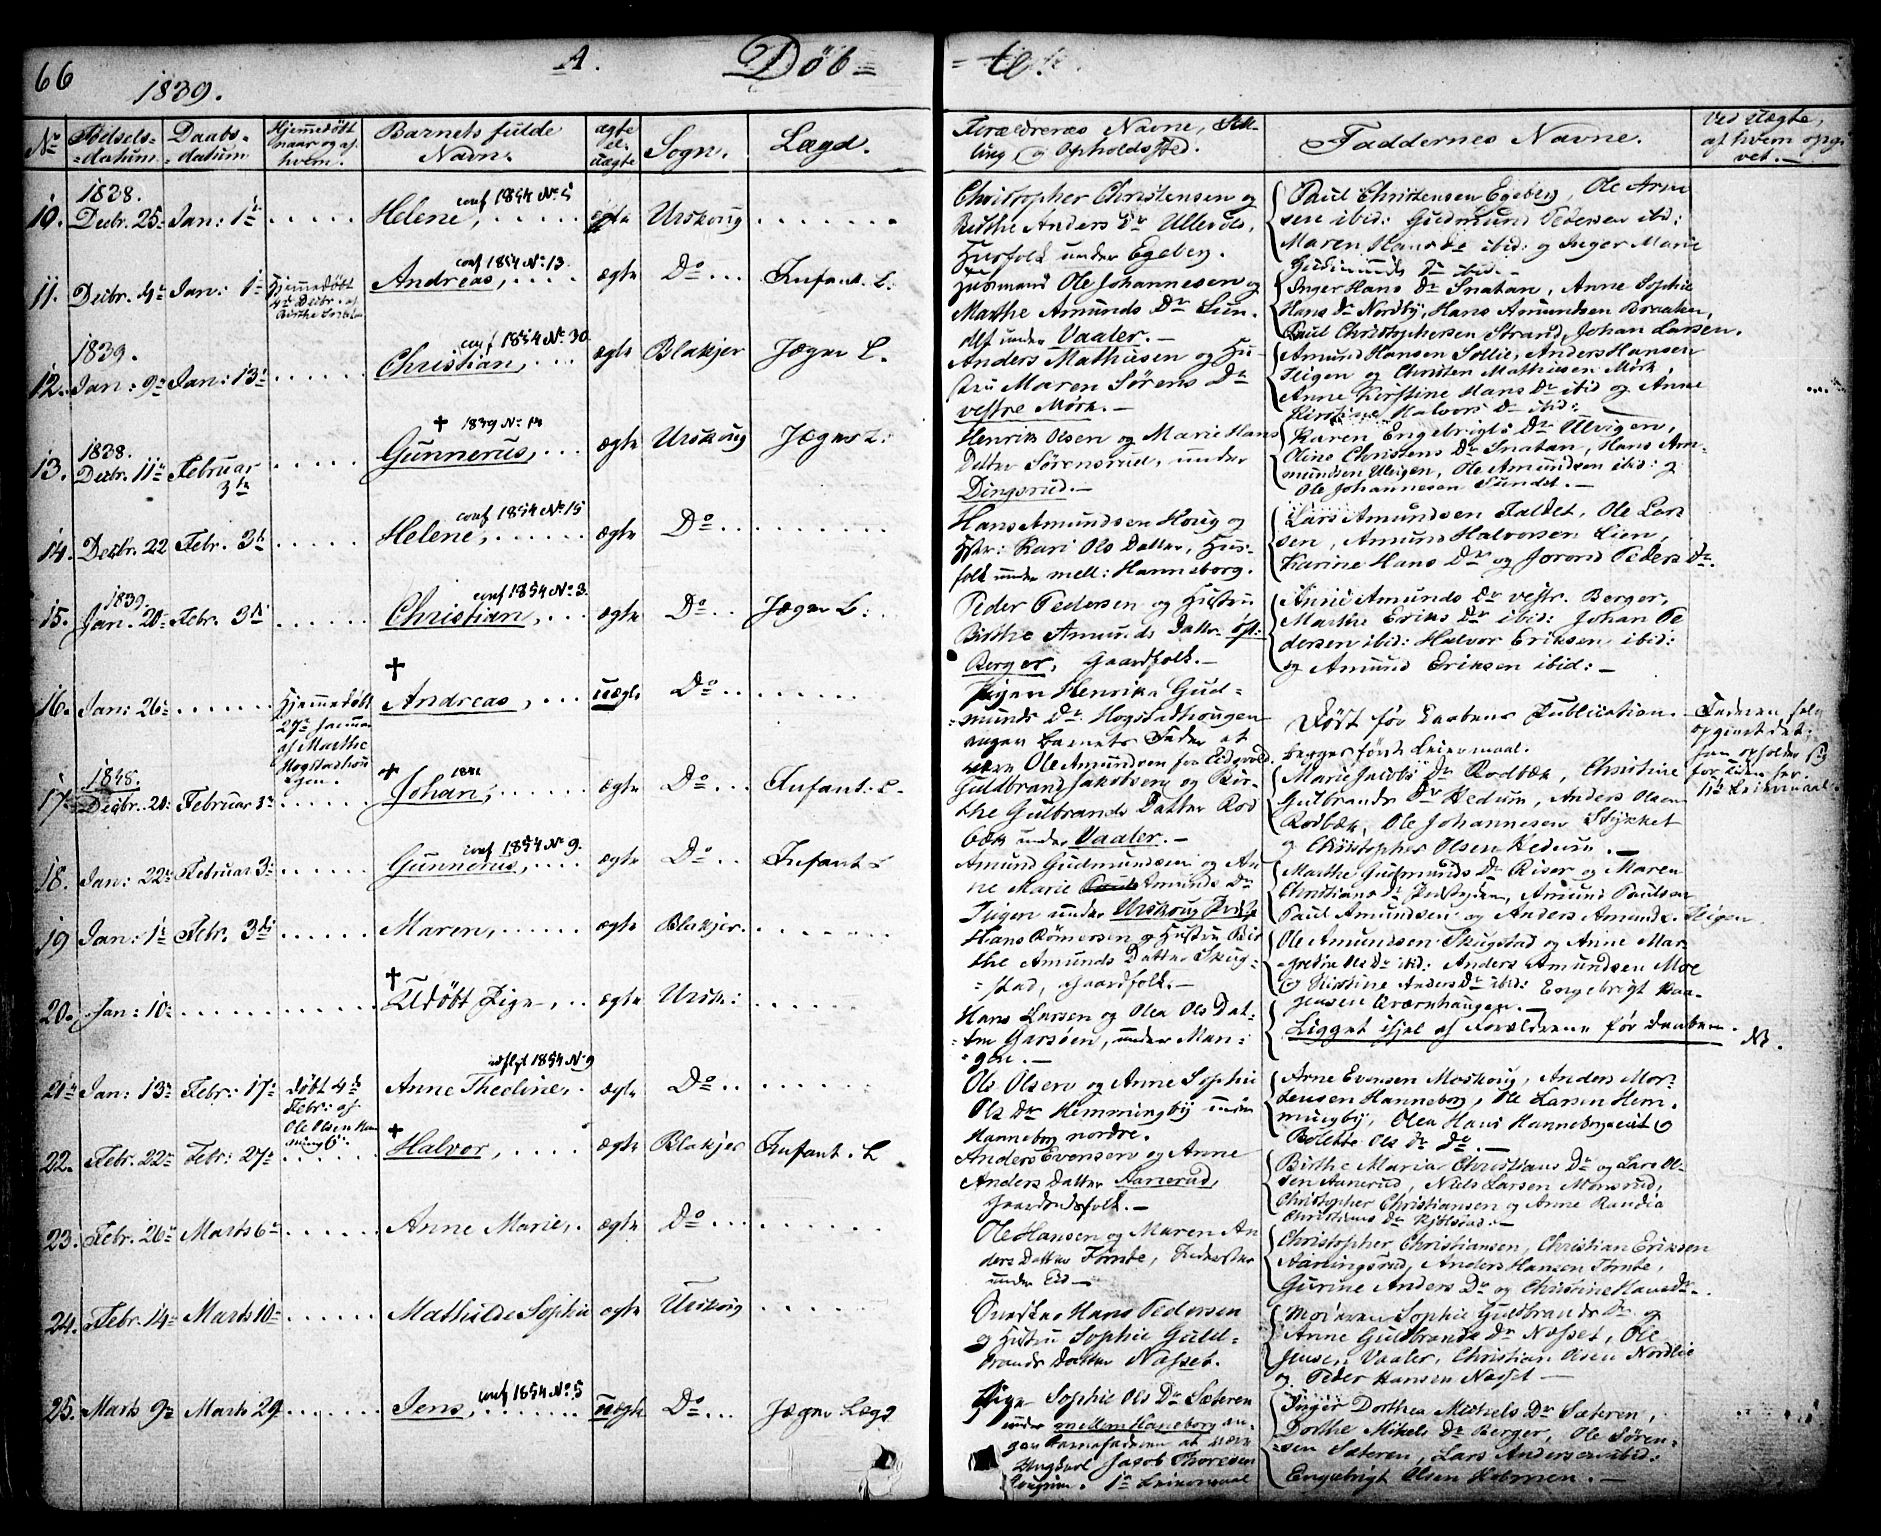 66
1839.
A.
Döb=
=te.
No
Födsels-
=datum.
Daabs-
=datum.
Hjemmedöbt
naar og af
hvem.
Barnets fulde
Navn.
ægte
el.
uægte
Sogn.
Lægd.
Forældrenes Navne, Stil-
ling og Opholdssted.
Faddernes Navne.
Ved Uægte,
af hvem opgi-
vet.
10.
1838.
Decbr. 25.
Jan: 1te
Helene,
conf 1854 No 5
ægte
Urskoug
Christopher Christensen og
Birthe Anders Dr Ullevols,
Husfolk under Egeberg.
Paul Christensen Egeberg, Ole Arne
sen ibid: Gudmund Pedersen ibid:
Maren Hans Dr ibid: og Inger Marie
Gudmunds Dr ibid.-
11.
Decbr. 4de
Jan: 1te
Hjemmedöbt
4de Decbr. af
Andreas,
conf 1854 No 13.
ægte
Do
Infant. L:
Husmand Ole Johannesen og
Marthe Amunds Dr Lien.
under Vaaler.-
Inger Hans Dr Snatan, Anne Sophie
Hans Dr Nordby, Hans Amundsen Braaten,
Paul Christophersen Strand, Johan Larsen.
12.
1839.
Jan: 9de
Jan: 13de
Christian,
conf 1854 No 30
ægte
Blakjer
Jæger L.
Anders Mathiesen og Hu-
stru Maren Sörens Dr
vestre Mörk.-
Amund Hansen Sollie, Anders Hansen
Teigen og Christen Mathiesen Mörk,
Anne Kirstine Hans Dr ibid og Anne
Kirstine Halvors Dr ibid:
13.
1838.
Decbr. 11te
Februar
3de
† 1839 No 14
Gunnerus,
ægte
Urskoug
Jæger L:
Henrik Olsen og Marie Hans
Datter Sörensrud, under
Dingsrud.-
Karen Engebrigts Dr Ulvigen,
Oline Christens Dr Snatan, Hans Am-
mundsen Ulvigen, Ole Amundsen ibid: og
Ole Johannesen Sundet.-
14.
Decbr. 22
Febr. 3de
Helene,
conf 1854 No 15
ægte
Do
Hans Amundsen Houg og
Hstr: Kari Ols Datter, Hus-
folk under mell: Hanneborg.
Lars Amundsen Faldet, Ole Lar
sen, Amund Halvorsen Lien,
Karine Hans Dr og Jorond Peders Dr.
15.
1839.
Jan. 20de
Febr. 3de
Christian,
conf 1854 No 3.
ægte
Do
Jæger L:
Peder Pedersen og Hustru
Birthe Amunds Datter Öst:
Berger, Gaardfolk.-
Anne Amunds Dr vestr. Berger,
Marthe Eriks Dr ibid: Johan Pe
dersen ibid: Halvor Eriksen ibid:
og Amund Eriksen ibid:-
16.
Jan: 26de
Hjemmedöbt
27de Januar
af Marthe
Hogstadhou
gen.
†
Andreas,
uægte
Do
Pigen Henrika Gud-
=munds Dr. Hogstadhougen
angav Barnets Fader at
være Ole Amundsen fra Eidsvold.
Död før Daabens Publication.
Begges förste Leiermaal.
Faderen selv
opgivet det:
17.
1838.
Decbr. 20de
Februar 3de
† 1841
Johan,
ægte
Do
Infant: L.
Guldbrand Jakobsen og Bir-
the Gulbrands Datter Rod
bæk under Vaaler.-
Marie Jacobs Dr Rodbæk, Christine
Gulbrands Dr Hedum, Anders Olsen
Rodbæk, Ole Johannesen Stykket
og Christopher Olsen Hedum.-
18.
Jan: 22de
Februar 3de
Gunnerus,
conf 1854 No 9.
ægte
Do
Infant L
Amund Gudmundsen og An
ne Marie Amunds Dr
Teigen under Urskoug Præste
Marthe Gudmunds Dr Riser og Maren
Christians Dr Amund Paulsen
Paul Amundsen og Anders Amunds. Teigen.
19
Jan: 1te
Febr. 3de
Maren,
ægte
Blakjer.
Hans Römersen og Hustru Bir
the Amunds Datter Skug-
=stad, Gaardfolk.-
Ole Amundsen Skugstad og Anne Mar-
grethe Ols Dr ibid: Anders Amundsen Moe
og Kirstine Anders Dr ibid: Engebrigt Haa-
gensen Qværnhaugen.-
20.
Jan: 10de
†
Udöbt Pige,
ægte
Ursk:
Hans Larsen og Olea Ols Dat-
ter Garsöen, under Man-
gen.-
Ligget ihjel af Forældrene för Daaben.
NB.
21.
Jan: 13de
Febr: 17de
Döbt 4de
Febr: af
Ole Olsen Hem
mingby.
Anne Theoline,
1854 No 9
ægte
Do
Ole Olsen og Anne Sophie
Ols Dr Hemmingby under
Hanneborg nordre.
Arne Evensen Moskoug, Anders Mor-
tensen Hanneborg, Ole Larsen Hem-
mingby, Olea Hans Hanneborgeiet og
Bolette Ols Dr Do.
22.
Febr. 22de
Febr: 27de
†
Halvor,
ægte
Blakjer
Infant. L
Anders Evensen og Anne
Anders Datter Aanerud,
Gaardmandsfolk.-
Birthe Maria Christians Dr og Lars Ol-
sen Aanerud, Niels Larsen Monsrud,
Christopher Christiansen og Anne Randia
Christians Dr Kjölstad.-
23.
Febr. 26de
Marts 6te
Anne Marie,
ægte
Do
Ole Hansen og Maren An
ders Datter Tomte, Inderster
under Eid-
Christopher Christiansen, Christian Eriksen
Aarlingsrud, Anders Hansen Tomte,
Gurine Anders Dr og Christine Hans Dr.
24.
Febr. 14de
Marts 10de
Mathilde Sophie
ægte
Urskoug
Hans Pedersen
og Hustru Sophie Guld-
brands Datter Næsset.
Moderen Sophie Guldbrands Dr og
Anne Guldbrands Dr Næsset, Ole
Jensen Vaaler, Christian Olsen Nordlie
og Peder Hansen Næsset-
25.
Marts 9de
Marts 29
Jens,
conf 1854 No 5
uægte
Do
Jæger Lægd
Pige Sophie Ols Dr Sæteren
under mellem Haneborg an-
gav Barnefaderen at være
Ungkarl Jacob Thoresen
1te Leiermaal
Inger Dorthea Mikkels Dr Sæteren,
Dorthe Mikels Dr Berger, Ole Sören-
sen Sæteren, Lars Andersen ibid:
Engebrigt Olsen Holmen.-